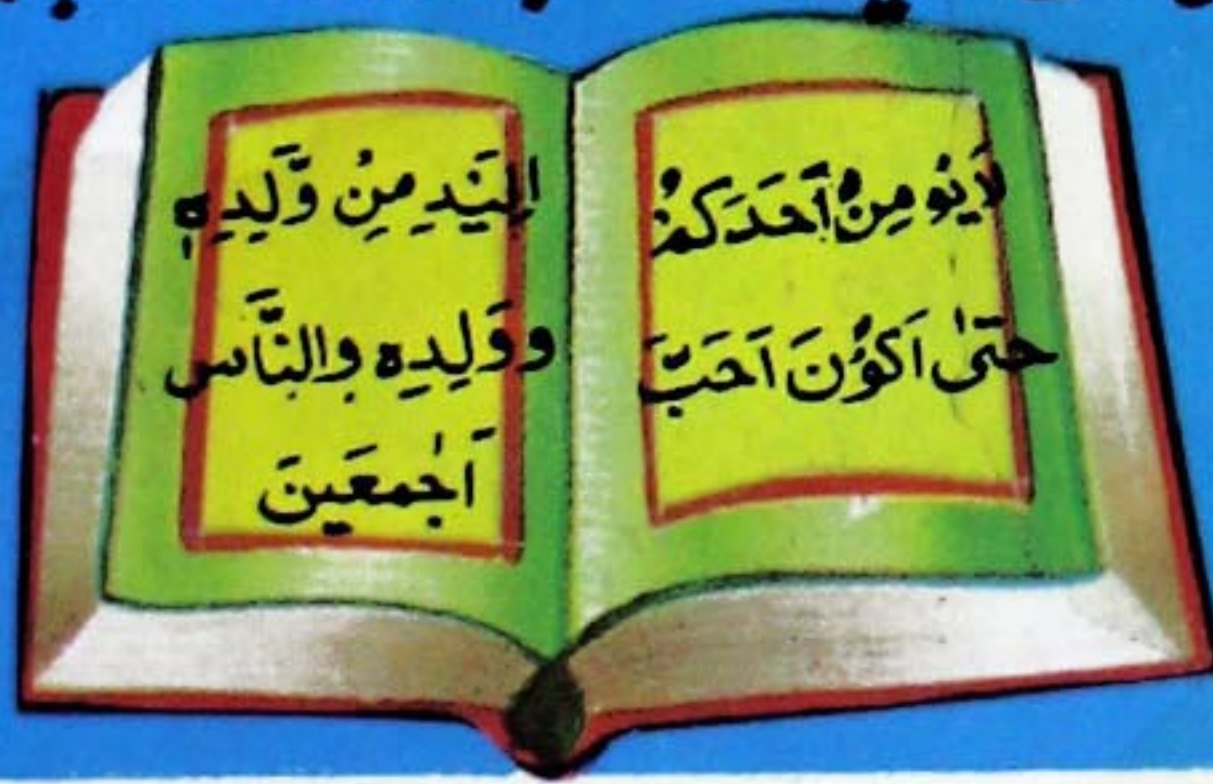 لَا يُو مِنُ اَحَدَكُمْ
حَتىٰ اَكُوْنَ اَحَبَّ
اِلَيَہِ مِنْ وَّلِدِہٖ
وَوَلِدِہٖ وَالنَّاس
اَجْمعَينَ